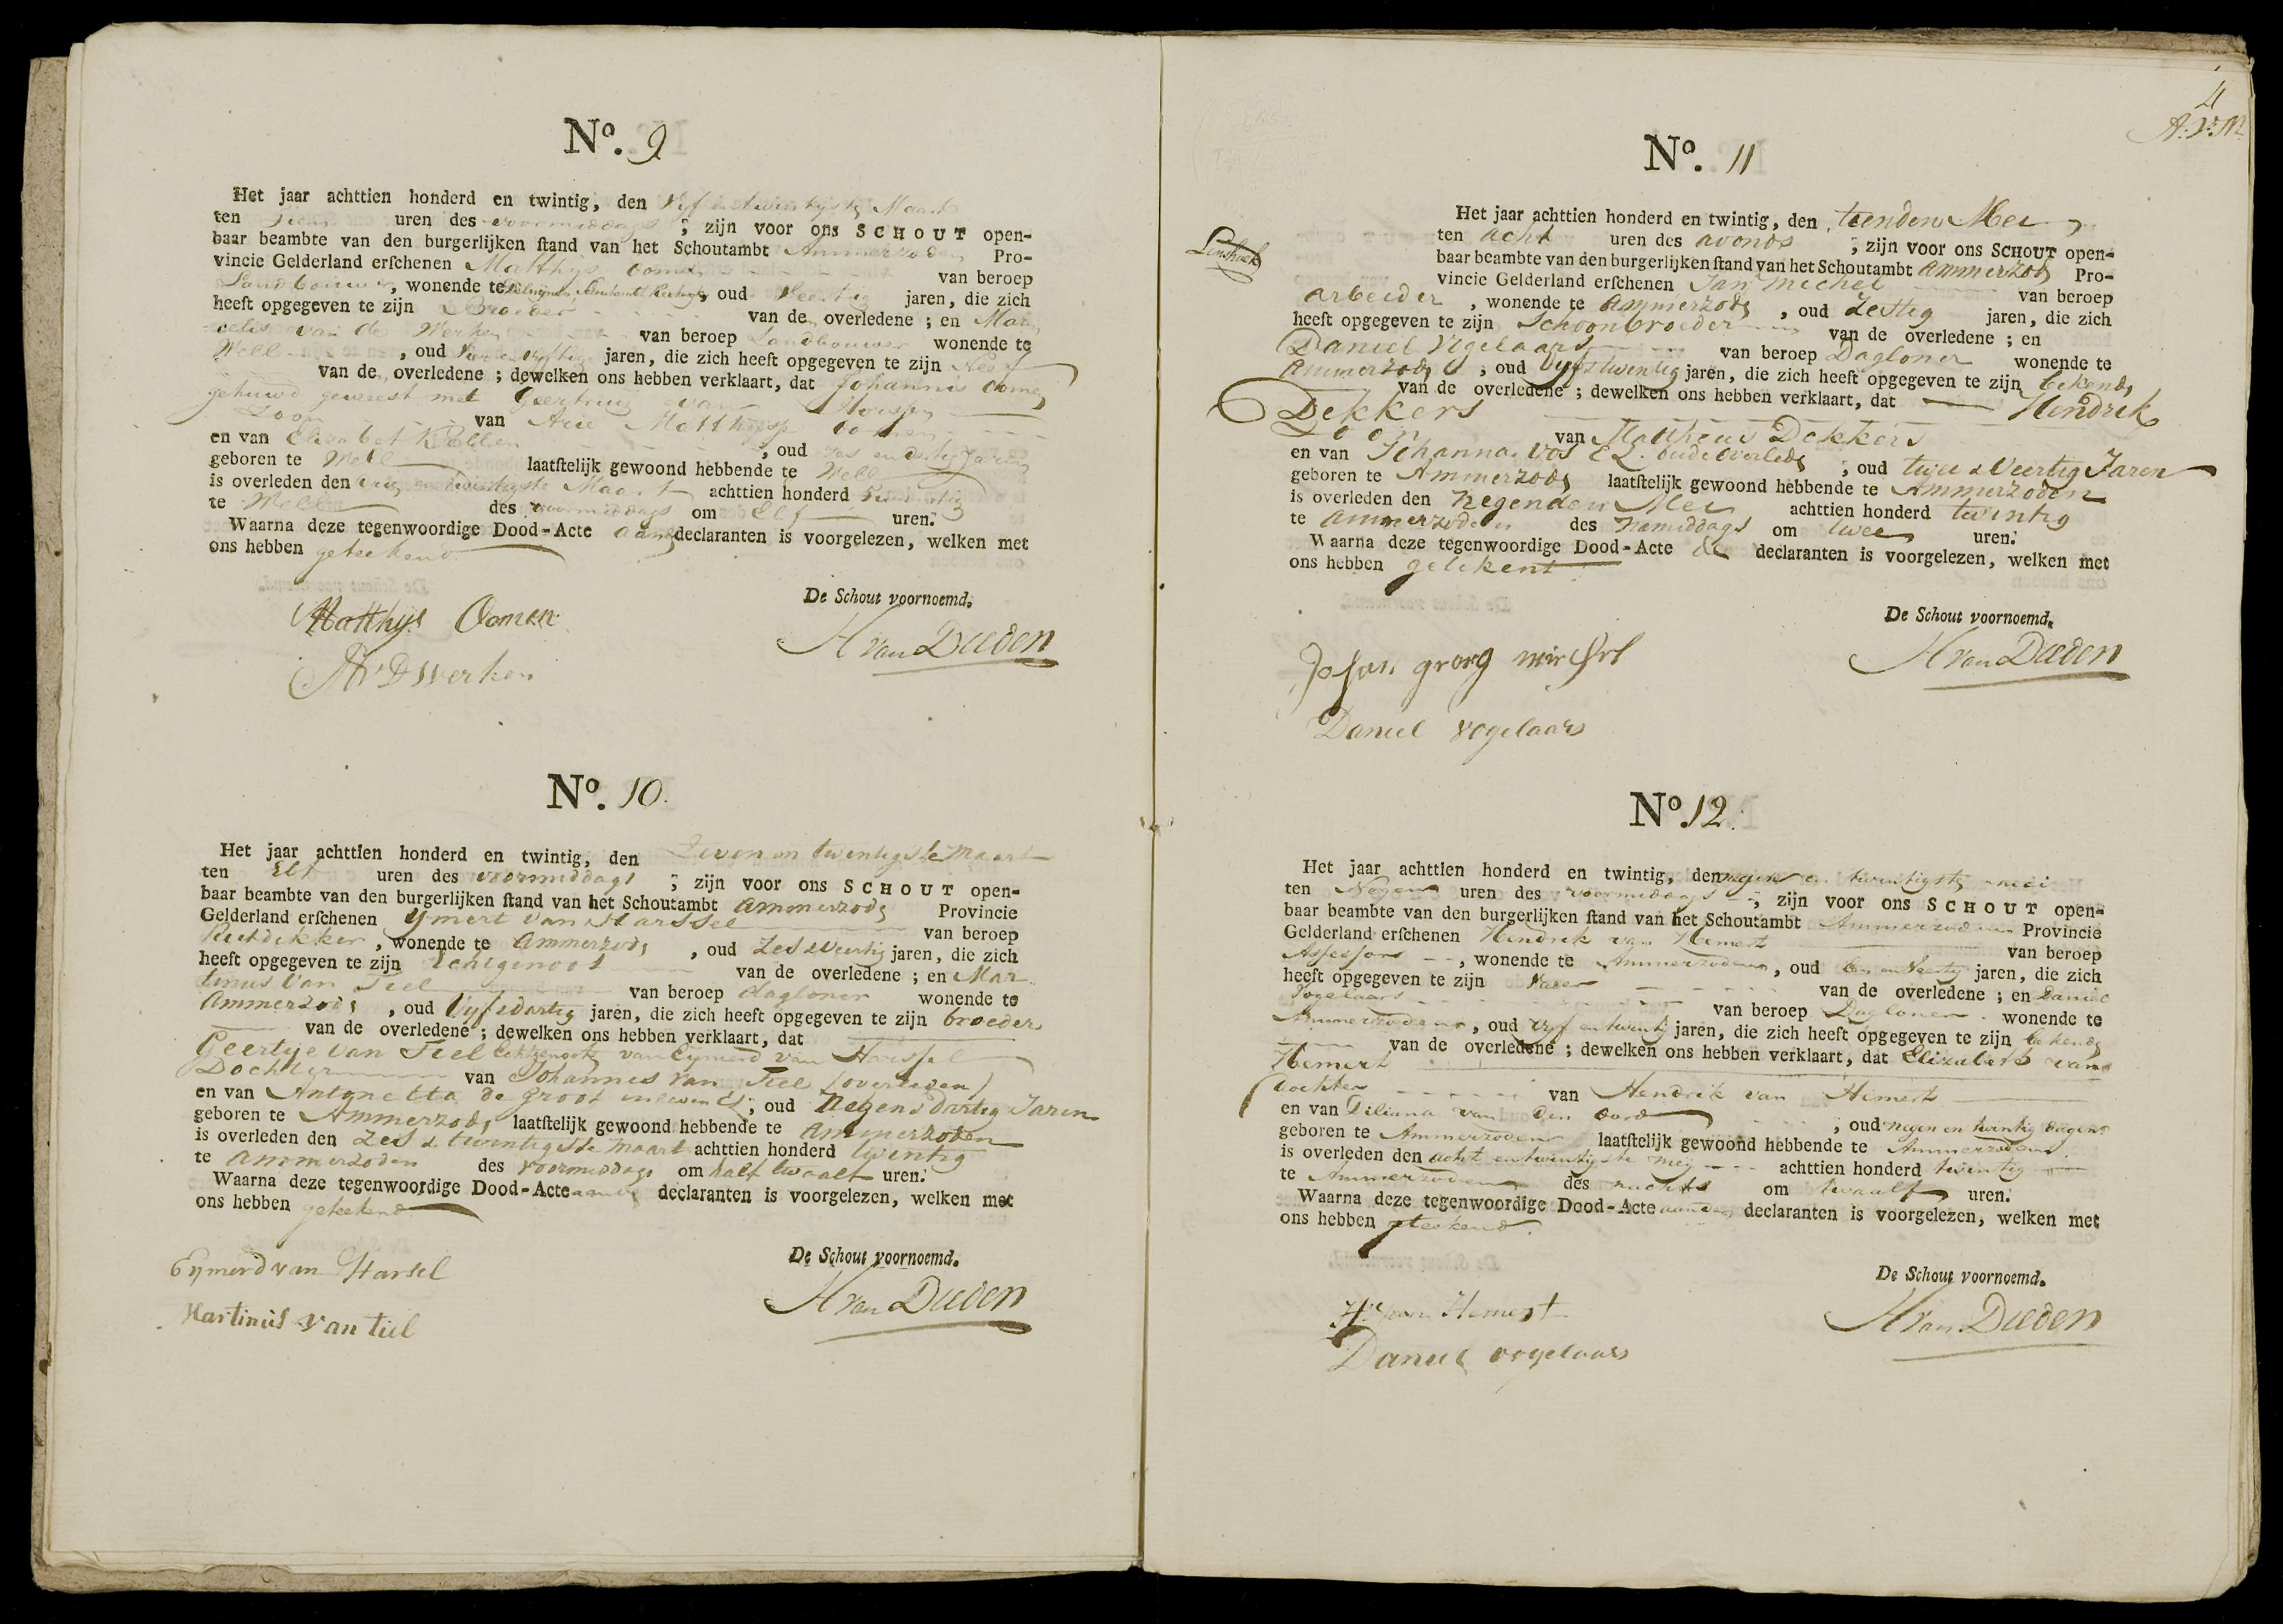 No. 9
Het jaar achttien honderd en twintig, den Vyf en twintigste Maart
ten Tien uren des voormiddags ; zijn voor ons SCHOUT open-
baar beambte van den burgerlijken ſtand van het Schoutambt Ammerzoden Pro-
vincie Gelderland erſchenen Matthijs Oomen van beroep
Landbouwer, wonende te oud Veertig jaren, die zich
heeft opgegeven te zijn Broeder van de overledene ; en Mar
celis van de Werken van beroep Landbouwer wonende te
Well , oud jaren, die zich heeft opgegeven te zijn Neef
van de overledene ; dewelken ons hebben verklaart, dat Johannis Oomen
gehuwd geweest met Geertruy van
Zoon van Arie Matthysse Oomen
en van Elizabet ; oud Zes en Jaren
geboren te Well laatſtelijk gewoond hebbende te Well
is overleden den twintigste Maart achttien honderd twintig
te Well des voormiddags om Elf uren.
Waarna deze tegenwoordige Dood-Acte aan de declaranten is voorgelezen, welken met
ons hebben geteekend
De Schout voornoemd.
Matthys Oomen H van Dæden
MVDWerken
No. 10.
Het jaar achttien honderd en twintig, den Zeven en twintigste Maart
ten Elf uren des voormiddags ; zijn voor ons SCHOUT open-
baar beambte van den burgerlijken ſtand van het Schoutambt Ammerzode Provincie
Gelderland erſchenen Ymert van Harssel van beroep
Rietdekker , wonende te Ammerzode , oud Zes & Veertig jaren, die zich
heeft opgegeven te zijn Echtgenoot van de overledene ; en Mar
tinus Van Tiel van beroep dagloner wonende te
Ammerzode , oud Vyf & dartig jaren, die zich heeft opgegeven te zijn broeder
van de overledene ; dewelken ons hebben verklaart, dat
Geertye Van Tiel Echtgenoote van Eymerd van Harssel
Dochter van Johannes van Tiel (overleden)
en van Antonetta de Groot ; oud Negen & Dartig Jaren
geboren te Ammerzode laatſtelijk gewoond hebbende te Ammerzoden
is overleden den Zes & twintigste Maart achttien honderd twintig
te Ammerzoden des voormiddags om half twaalf uren.
Waarna deze tegenwoordige Dood-Acte aan de declaranten is voorgelezen, welken met
ons hebben geteekend
De Schout voornoemd.
Eymerd van Harsel H van Dæden
Martinus van tiel
4
No. 11
Het jaar achttien honderd en twintig, den tienden Mei
ten acht uren des avonds ; zijn voor ons SCHOUT open-
baar beambte van den burgerlijken ſtand van het Schoutambt Ammerzode Pro-
vincie Gelderland erſchenen Jan Michel van beroep
arbeider , wonende te Ammerzode , oud Zestig jaren, die zich
heeft opgegeven te zijn Schoonbroeder van de overledene ; en
Daniel Vogelaars van beroep Dagloner wonende te
Ammerzode , oud Vyf & twintig jaren, die zich heeft opgegeven te zijn bekende
van de overledene ; dewelken ons hebben verklaart, dat Hendrik
Dekkers
Zoon van Mattheus Dekkers
en van Johanna Vos ; oud twee & Veertig Jaren
geboren te Ammerzode laatſtelijk gewoond hebbende te Ammerzoden
is overleden den Negenden Mei achttien honderd twintig
te Ammerzoden des Namiddags om twee uren.
Waarna deze tegenwoordige Dood-Acte de declaranten is voorgelezen, welken met
ons hebben getekent
De Schout voornoemd.
Johan georg michel H van Dæden
Daniel vogelaars
No. 12.
Het jaar achttien honderd en twintig, den negen en twintigste mei
ten Negen uren des voormiddags ; zijn voor ons SCHOUT open-
baar beambte van den burgerlijken ſtand van het Schoutambt Ammerzoden Provincie
Gelderland erſchenen Hendrik van Hemert van beroep
Assessor , wonende te Ammerzoden , oud Een en Veertig jaren, die zich
heeft opgegeven te zijn Vader van de overledene ; en Daniel
Vogelaars van beroep Dagloner wonende te
Ammerzoden , oud vyf en twintig jaren, die zich heeft opgegeven te zijn bekende
van de overledene ; dewelken ons hebben verklaart, dat Elizabeth van
Hemert
Dochter van Hendrik van Hemert
en van Diliana van den Oord ; oud negen en twintig dagen
geboren te Ammerzoden laatſtelijk gewoond hebbende te Ammerzoden
is overleden den acht en twintigste mey achttien honderd twintig
te Ammerzoden des nachts om twaalf uren.
Waarna deze tegenwoordige Dood-Acte aan de declaranten is voorgelezen, welken met
ons hebben geteekend.
De Schout voornoemd.
Hk van Hemert H van Dæden
Daniel vogelaars